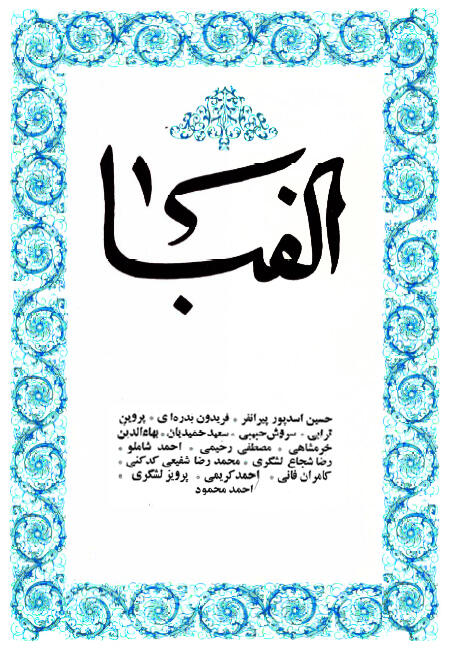 الفبا
۱
حسین اسدپور پیرانفر * فریدون بدره‌ای * پروین
ترابی * سروش حبیبی * سعید حمیدیان * بهاءالدین
خرمشاهی * مصطفی رحیمی * احمد شاملو *
رضا شجاع لشگری * محمد رضا شفیعی کدکنی *
کامران فانی * احمد کریمی * پرویز لشگری *
احمد محمود